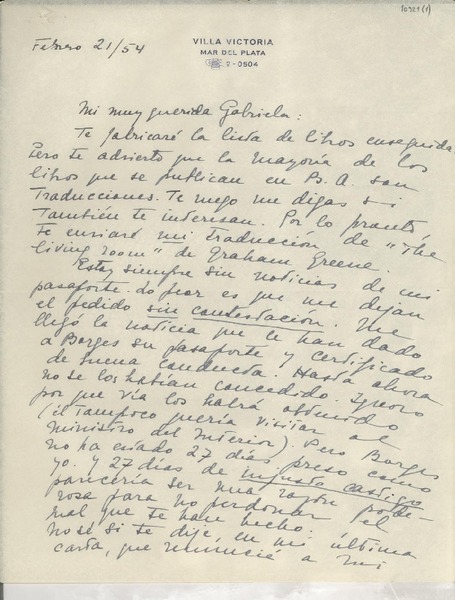 10921(1)
VILLA VICTORIA
MAR DEL PLATA
2-0504
Febrero 21/54
Mi muy querida Gabriela:
Te fabricaré la lista de libros enseguida.
Pero te advierto que la mayoría de los
libros que se publican en B. A. son
traducciones. Te ruego me digas si
también te interesan. Por lo pronto,
te enviaré mi traduccion de "The
living room" de Graham Greene.
Estoy siempre sin noticias de mi
pasaporte. Lo peor es que me dejan
el pedido sin contestación. Me
llegó la noticia que le han dado
a Borges su pasaporte y certificado
de buena conducta. Hasta ahora
no se los habían concedido. Ignoro
por que vía los habrá obtenido
(él tampoco quería visitar al
Ministro del Interior). Pero Borges
no ha estado 27 días preso como
yo. Y 27 días de injusto castigo
parecería ser una razón pode-
rosa para no perdonar el
mal que te han hecho.
No sé si te dije, en mi última
carta, que renuncié a mi